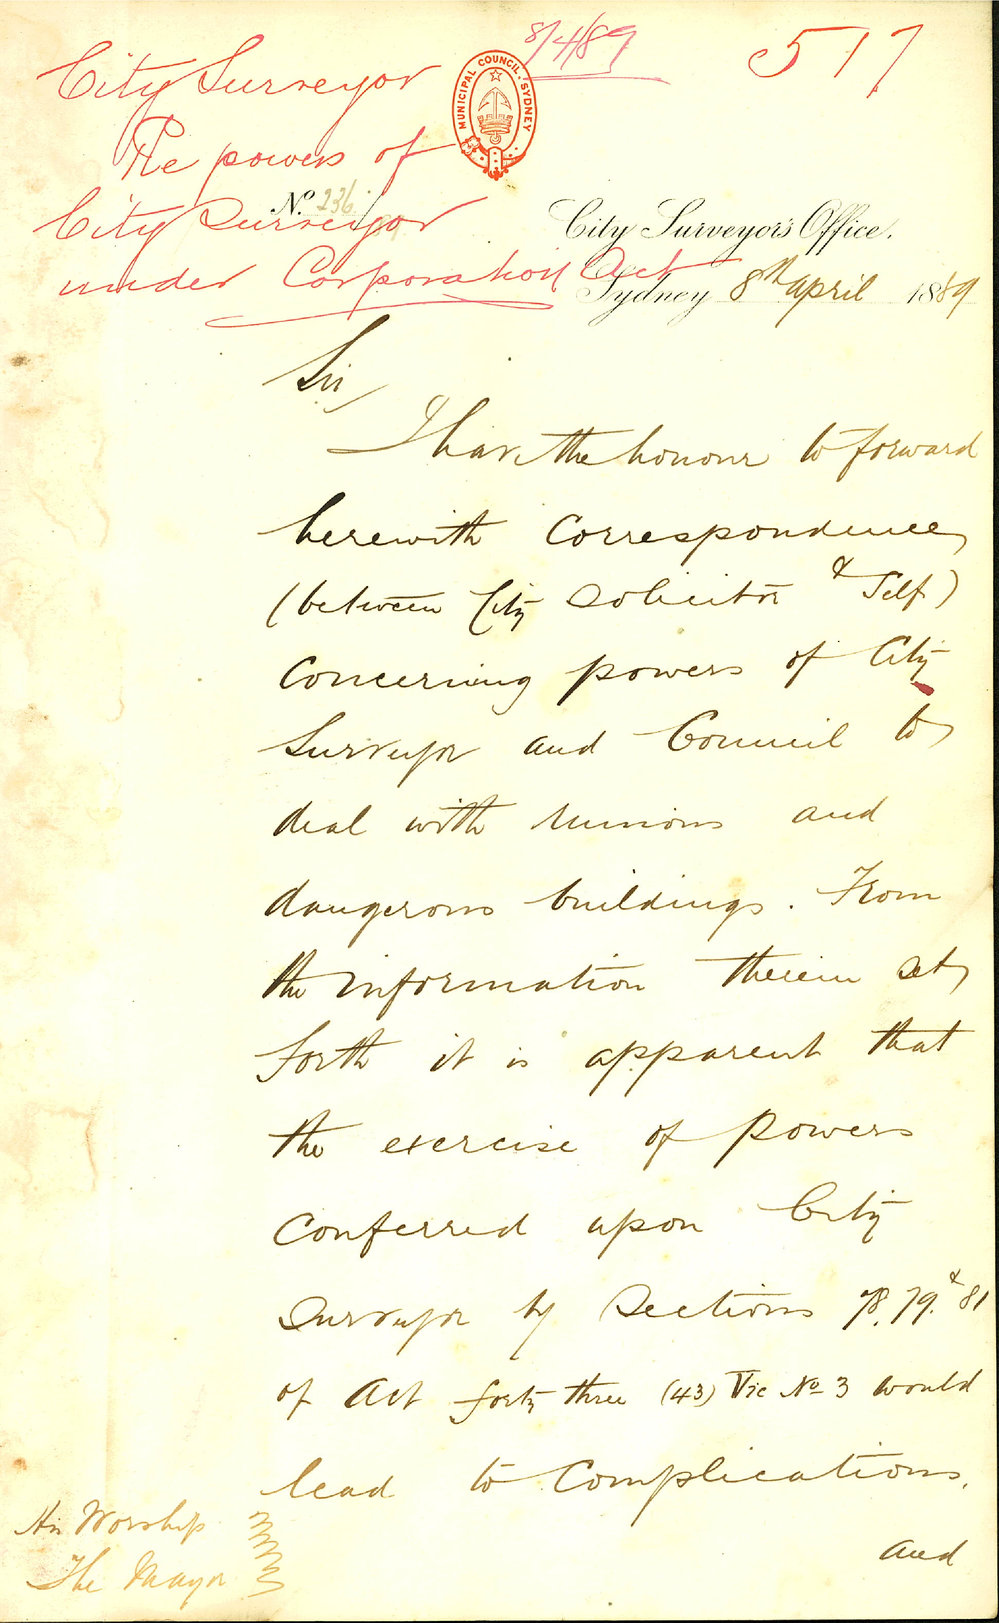 8/4/89
517
City Surveyor
Re powers of
City Surveyor
under Corporation Act
MUNICIPAL COUNCIL. SYDNEY
No. 236
City Surveyor's Office.
Sydney 8th April 1889
Sir,
I have the honour to forward
herewith Correspondence
(between City Solicitor & Self)
concerning powers of City
Surveyor and Council to
deal with ruinous and
dangerous buildings. From
the information therein set
forth it is apparent that
the exercise of powers
conferred upon City
Surveyor by Sections 78, 79. & 81
of Act forty three (43) Vic No 3 would
lead to Complications.
and
His Worship
The Mayor